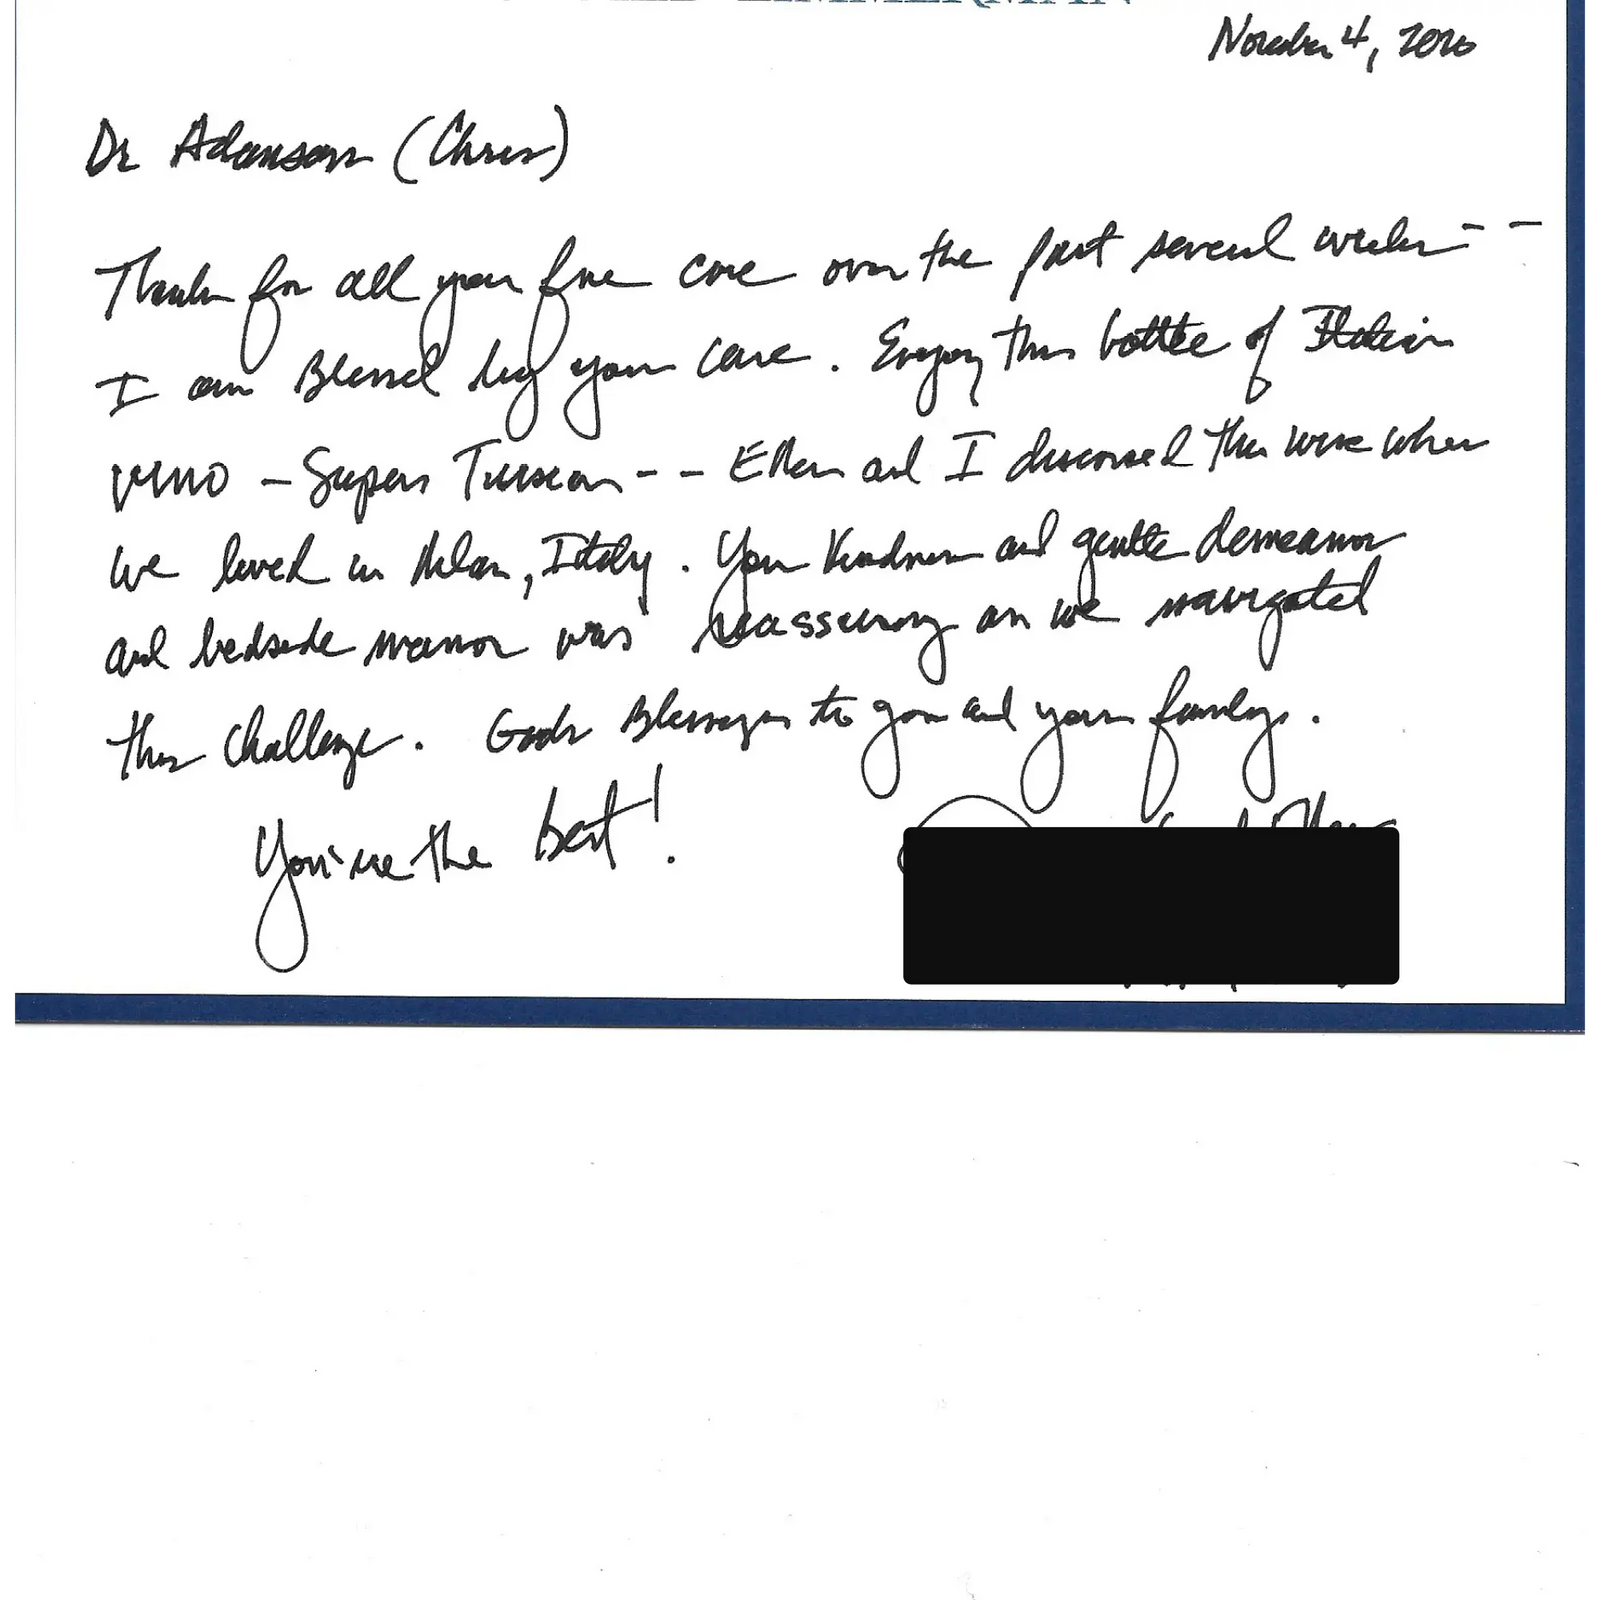 November 4, 2020
Dr Adamson (Chris)
Thanks for all your fine care over the past several weeks - -
I am Blessed by your care. Enjoy this bottle of Italian
VINO - Super Tuscan - - Ellen and I discovered this wine when
we lived in Milan, Italy. Your Kindness and gentle demeanor
and bedside manor was reassuring as we navigated
this challenge. Gods Blessings to you and your family.
You're the best!